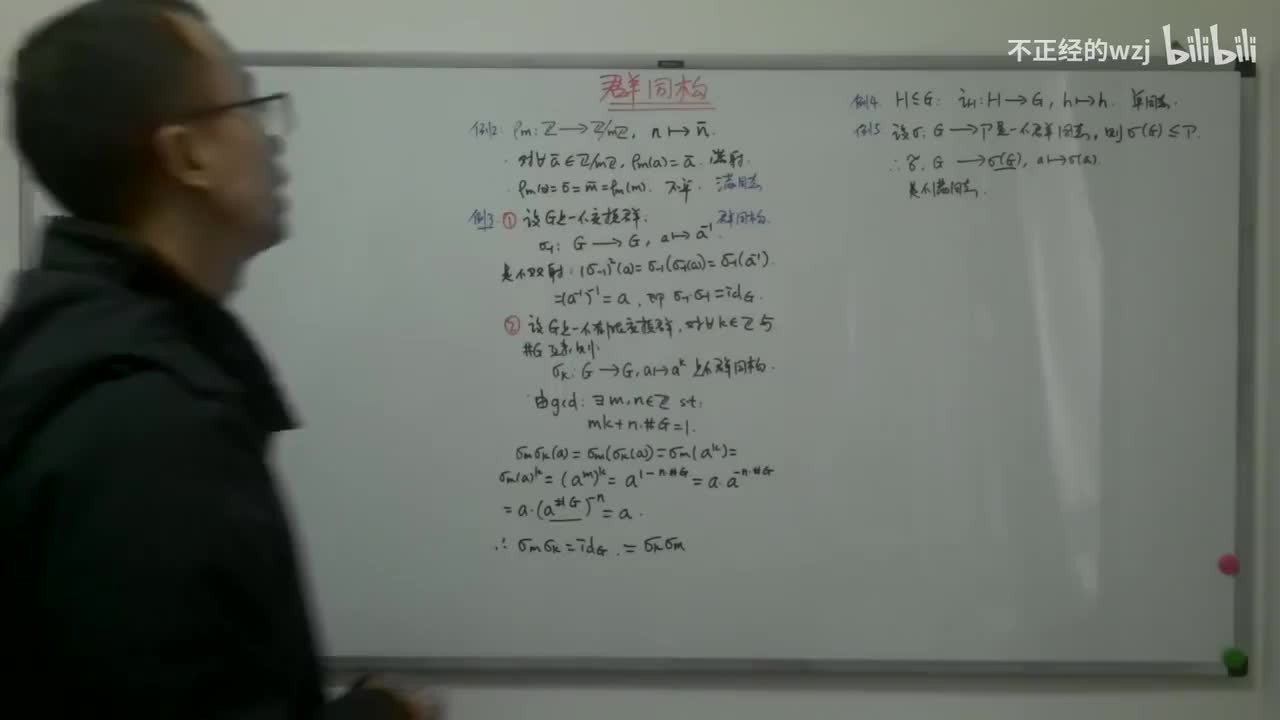 不正经的wzj bilibili
群同构
例2: ρm: Z → Z/mZ, n ↦ n̄.
· 对∀ ā ∈ Z/mZ, ρm(a) = ā. 满射.
· ρm(0) = 0̄ = m̄ = ρm(m). 不单. 满同态
例3 ① 设G是一个交换群. 群同构
σ₋₁: G → G, a ↦ a⁻¹.
是个双射: (σ₋₁)²(a) = σ₋₁(σ₋₁(a)) = σ₋₁(a⁻¹).
= (a⁻¹)⁻¹ = a, 即 σ₋₁σ₋₁ = id_G.
② 设G是一个有限交换群. 对∀ k ∈ Z 与
#G 互素, 则:
σk: G → G, a ↦ aᵏ 是个群同构.
由gcd: ∃ m, n ∈ Z st.
mk + n·#G = 1.
σmσk(a) = σm(σk(a)) = σm(aᵏ) =
σm(a)ᵏ = (aᵐ)ᵏ = a^{1-n·#G} = a·a^{-n·#G}
= a·(a^{#G})^{-n} = a.
∴ σmσk = id_G. = σkσm
例4. H ≤ G: i_H: H → G, h ↦ h. 单同态.
例5 设σ: G → Γ是一个群同态, 则 σ(G) ≤ Γ.
∴ σ̃: G → σ(G), a ↦ σ(a).
是个满同态.